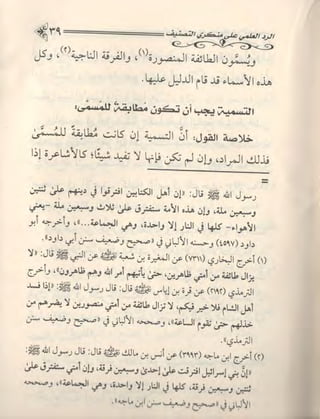 الرد العلمي على منكري التصنيف ٣٩
ويُسمَّون الطائفة المنصورة(١)، والفرقة الناجية(٢)، وكل
هذه الأسماء قد قام الدليل عليها.
التسمية يجب أن تكون مُطابقةً للمُسمَّى:
خلاصة القول، أنَّ التسمية إن كانت مُطابقةً للمُسمَّى
فذلك المراد، وإن لم تكن فإنها لا تفيد شيئًا؛ كالأشاعرة إذا
=
رسول الله ﷺ قال: «إن أهل الكتابين افترقوا في دينهم على ثنتين
وسبعين ملة، وإن هذه الأمة ستفترق على ثلاث وسبعين ملة -يعني
الأهواء- كلها في النار إلا واحدة، وهي الجماعة...»، وأخرجه أبو
داود (٤٥٩٧) وحسنه الألباني في «صحيح وضعيف سنن أبي داود».
(١) أخرج البخاري (٧٣١١) عن المغيرة بن شعبة عن النبي ﷺ قال: «لا
يزال طائفة من أمتي ظاهرين، حتى يأتيهم أمر الله وهم ظاهرون»، وأخرج
الترمذي (٢١٩٢) عن قرة بن إياس قال: قال رسول الله ﷺ: «إذا فسد
أهل الشام فلا خير فيكم، لا تزال طائفة من أمتي منصورين لا يضرهم من
خذلهم حتى تقوم الساعة»، وصححه الألباني في «صحيح وضعيف سنن
الترمذي».
(٢) أخرج ابن ماجه (٣٩٩٣) عن أنس بن مالك قال: قال رسول الله ﷺ:
«إنَّ بني إسرائيل افترقت على إحدى وسبعين فرقة، وإن أمتي ستفترق على
ثنتين وسبعين فرقة، كلها في النار إلا واحدة، وهي الجماعة»، وصححه
الألباني في «صحيح وضعيف سنن ابن ماجه».